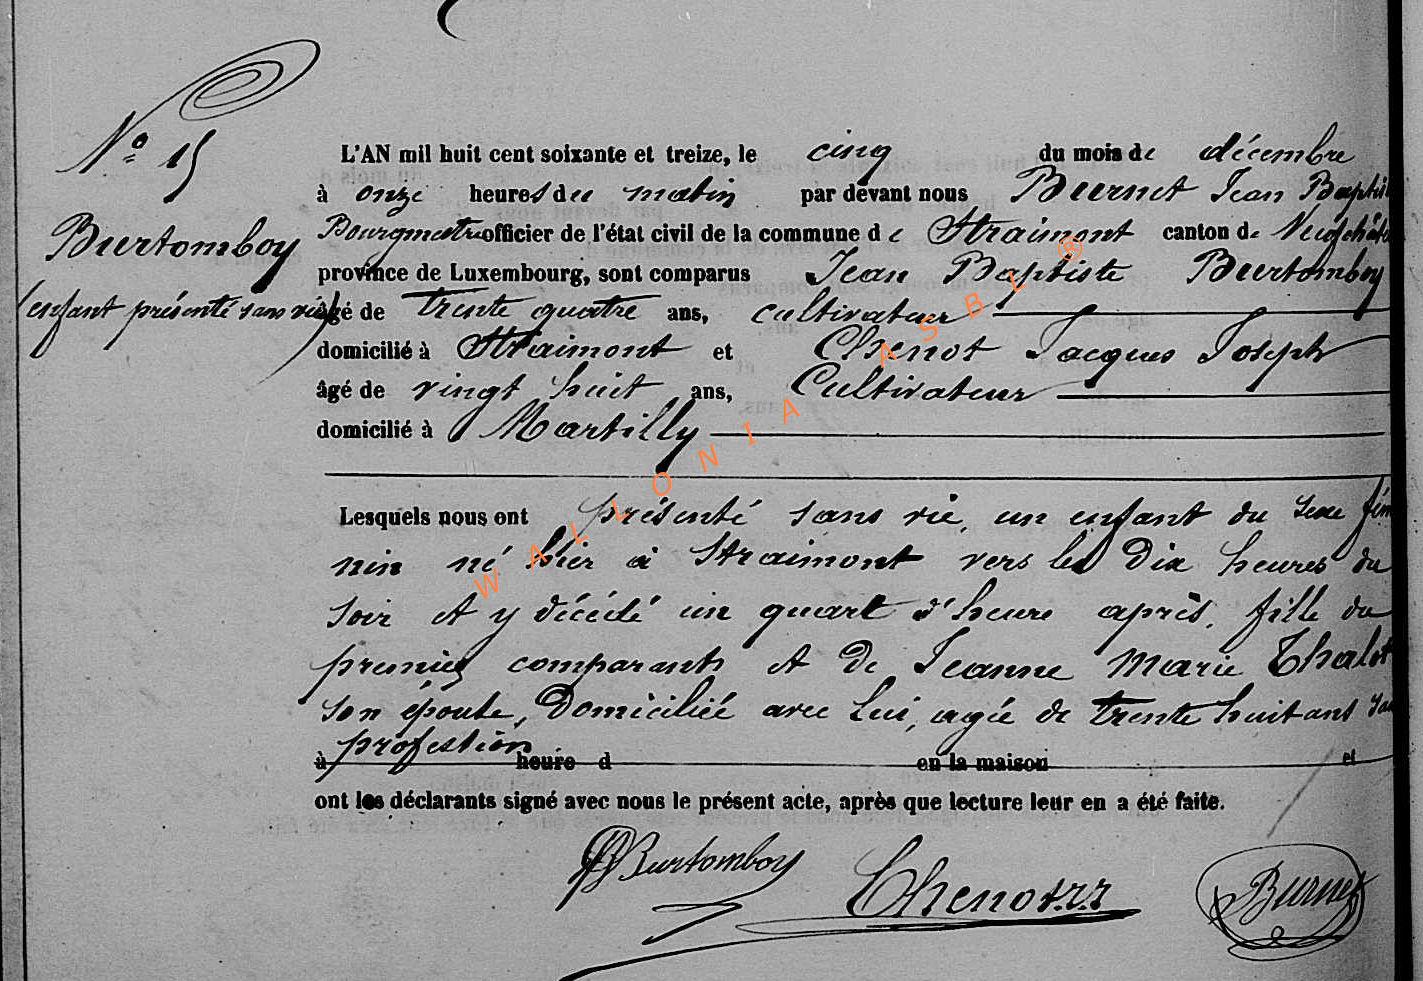 N° 15
Burtomboy
(enfant présenté sans vie)
L'AN mil huit cent soixante et treize, le cinq du mois de décembre
à onze heures du matin par devant nous Burnet Jean Baptis
Bourgmestre officier de l'état civil de la commune de Straimont canton de Neufchâte
province de Luxembourg, sont comparus Jean Baptiste Burtomboy
âgé de trente quatre ans, cultivateur
domicilié à Straimont et Chenot Jacques Joseph
âgé de vingt huit ans, Cultivateur
domicilié à Martilly
Lesquels nous ont présenté sans vie, un enfant du sexe fém
nin né hier à Straimont vers les dix heures du
soir et y décédé un quart d'heure après, fille du
premier comparant et de Jeanne Marie Thalot
son épouse, domiciliée avec lui, agée de trente huit ans sa
profession
à heure d en la maison et
ont les déclarants signé avec nous le présent acte, après que lecture leur en a été faite.
JBurtomboy Chenot Burnet
WALLONIA ASBL ®